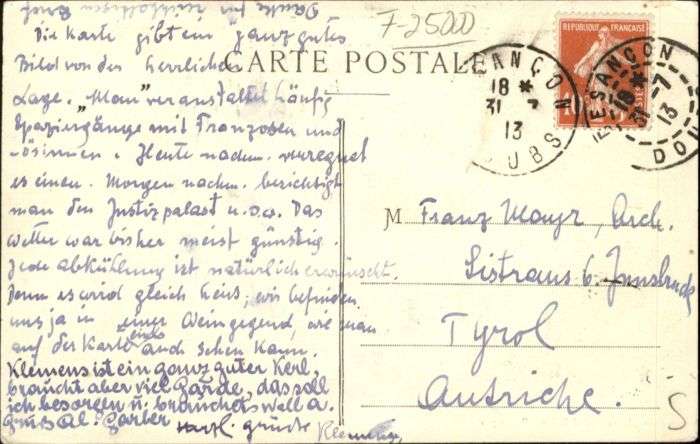 Danke für
F-25000
Die Karte gibt ein ganz gutes
Bild von der herrlichen
CARTE POSTALE
Lage. „Man" veranstaltet häufig
Spaziergänge mit Franzosen und
-ösinnen. Heute nachm. verregnet
es einen. Morgen nachm. berichtigt
man den Justizpalast u.s.w. Das
Wetter war bisher meist günstig.
Jede Abkühlung ist natürlich erwünscht.
Denn es wird gleich heiss, wir befinden
uns ja in einer Weingegend, wie man
auf der Karte auch sehen kann.
Klemens ist ein ganz guter Kerl,
braucht aber viel Garde, das soll
ich besorgen u.
grüsse Klemens
REPUBLIQUE FRANÇAISE
BESANÇON
18 *
31 - 7
13
DOUBS
BESANÇON
18 *
31 - 7
13
DOUBS
M Franz Mayr, Arch.
Sistrans b. Innsbruck
Tyrol
Autriche.
S